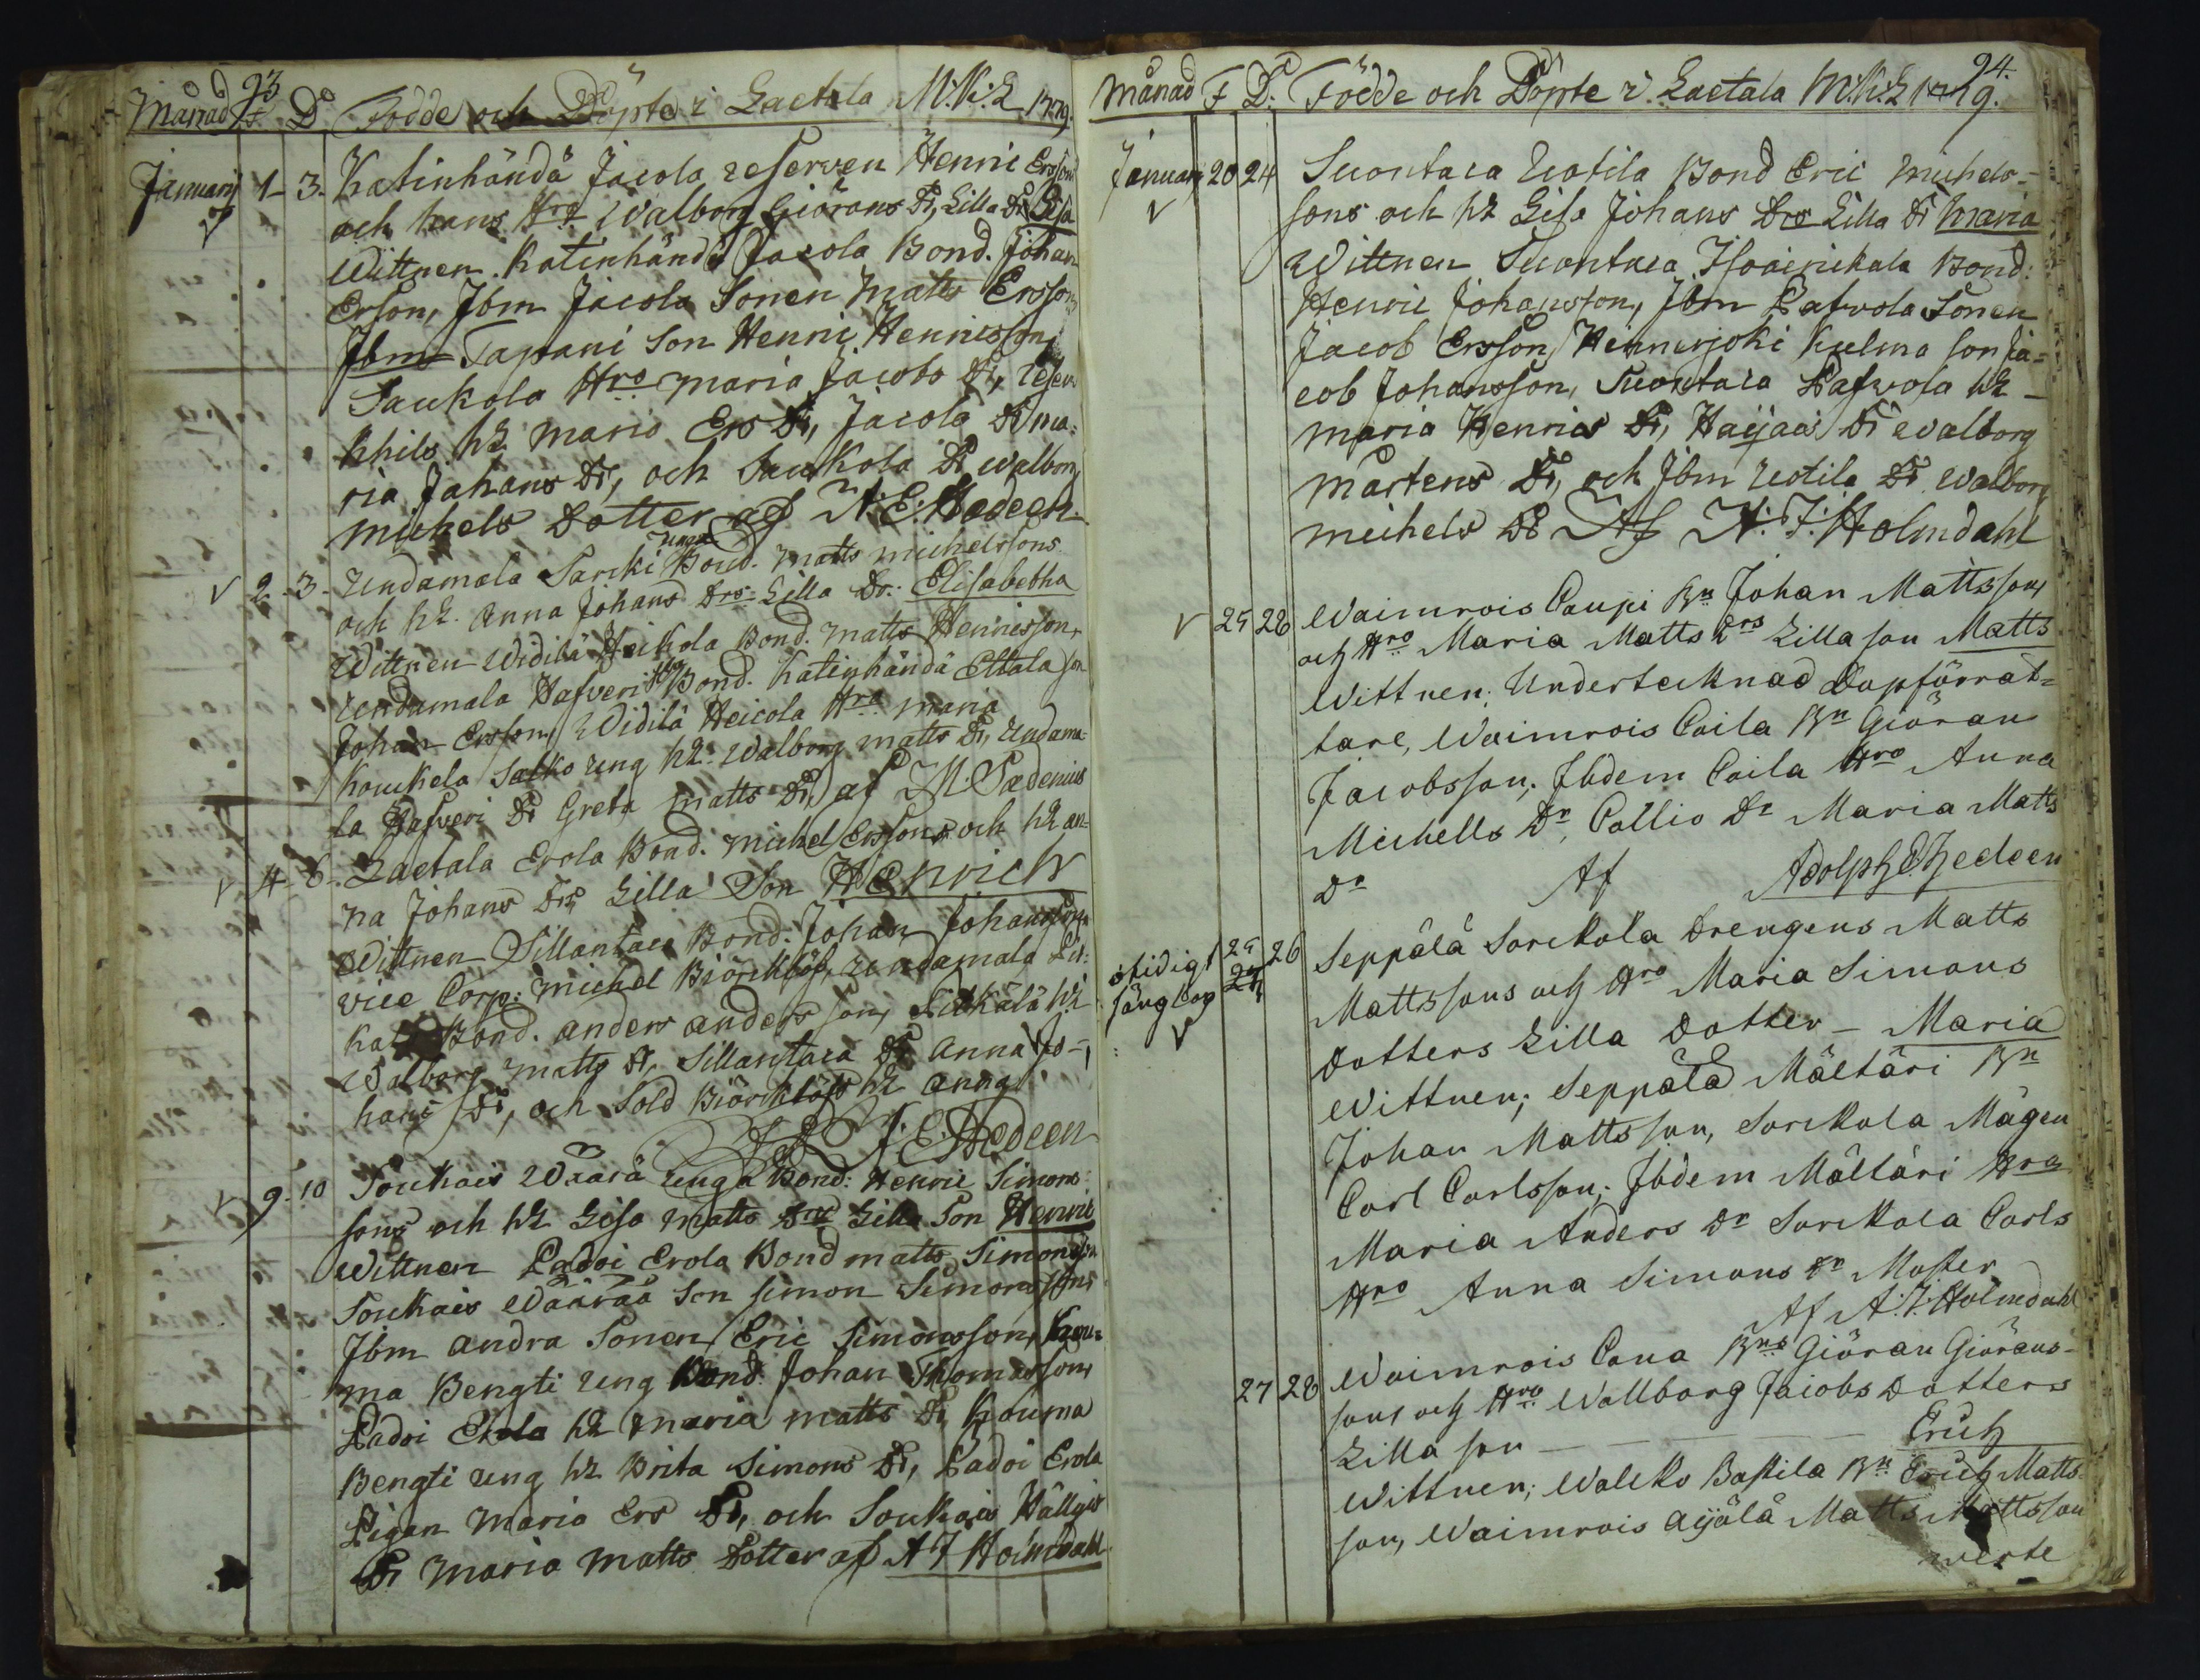 93
Månad F. D. Födde och Döpte i Laetala M:K:L 1779.
Januarij 1- 3. Katinhändä Jacola reserven Henric Ersson
och hans Hro Walborg Giörans Dr, Lilla Dr Lisa
Wittnen. Katinhändä Jacola Bond. Johan
Erson, Jbm Jacola Sonen Matts Ersson
Jbm Tapani Son Henric Henricsson,
Saukola Hro Maria Jacobs Dr, reserv
Khils h2 Maria Ers Dr, Jacola Dr ma:
ria Johans Dr, och Saukola Dr walborg
michels Dotter af N: E: Hedeen.
unga
√ 2.-3- Undamala Sarcki Bond. Matts michelssons
och h2. Anna Johans Drs Lilla Dr. Elisabetha
Wittnen Widilä Heikola Bond. Matts Henricsson,
Undamala Hafveri Bond. Katinhändä Ettala son
Johan Ersson, Widilä Heicola Hro maria
Koukela Salko ung h2. Walborg matts Dr, Undama:
la Hafveri Dr Greta Matts Dr, af M. Padenius
√ 4- 6- Laetala Erola Bond. michel Erssons och h2 an-
na Johans Drs Lilla Son Henrich
Wittnen Sillantaca Bond. Johan Johansson
vice Corp: michel Biörcklöf, Undamala Pit:
Bond. anders andersson, h2
Walborg matts Dr, Sillantaca Dr Anna Jo-
hans Dr, och Sold Biörcklöfs h2 Anna
J: E: Hedeen
√ 9. 10 Soukais Wäärä unga Bond: Henric Simons
sons och h2 Lisa Matts Drs Lilla Son Henric
Wittnen Ladoi Erola Bond matts Simonsson
Soukais Wäärää Son simon Simonsson,
Jbm andra Sonen, Eric Simonsson, Kou:
ma Bengti ung Bond. Johan Thomasson,
Ladoi Erola h2 maria matts Dr, Kouma
Bengti ung h2 Brita Simons Dr, Ladoi Erola
Pigan Maria Ers Dr, och Soukais Hällgis
Dr Maria Matts Dotter af A J Holmdahl
94.
Månad F D. Födde och Döpte i Laetala M:K:L 1779.
Januarij 20 24 Suontaca Uotila Bond Eric michels-
√ sons och h2 Lisa Johans Drs Lilla Dr Maria
Wittnen Suontaca Bond:
Henric Johansson, Jbm Pafvola Sonen
Jacob Ersson, Heinenjoki Kulma son Ja=
cob Johansson, Suontaca Pafvola h2-
maria Henrics Dr, Haijais Dr walborg
mårtens Dr, och Jbm Uotila Dr. Walborg
michels Dr Af N: J: Holmdahl
√ 25 28 Waimrois Caupi Bn Johan Mattsson,
och Hro Maria Matts Drs Lilla son Matts
Wittnen; Underteknad Dopförrät=
tare, Waimrois Caila Bn Giöran
Jacobsson; Jbdem Caila Hro Anna
Michells Dr, Callio Dr Maria Matts
Dr Af Adolph E Hedeen
ofidigt 25 26 Seppälä Sorckola Drengens Matts
24 Mattssons och Hro Maria Simons
√ Dotters Lilla Dotter – Maria
Wittnen; Seppälä Mältäri Bn
Johan Mattsson, Sorckola Mågen
Carl Carlsson; Jbdem Mältäri Hro
Maria Anders Dr Sorckola Carls
Hro Anna Simons Dr Moster
Af A: J: Holmdahl
27 28 Waimrois Cana Bns Giöran Giörans-
sons och Hro Wallborg Jacobs Dotters
Lilla son – Erich
Wittnen; Walcko Bastila Bn Erich Matts-
son, Waimrois Aijälä Matts Mattsson
werte